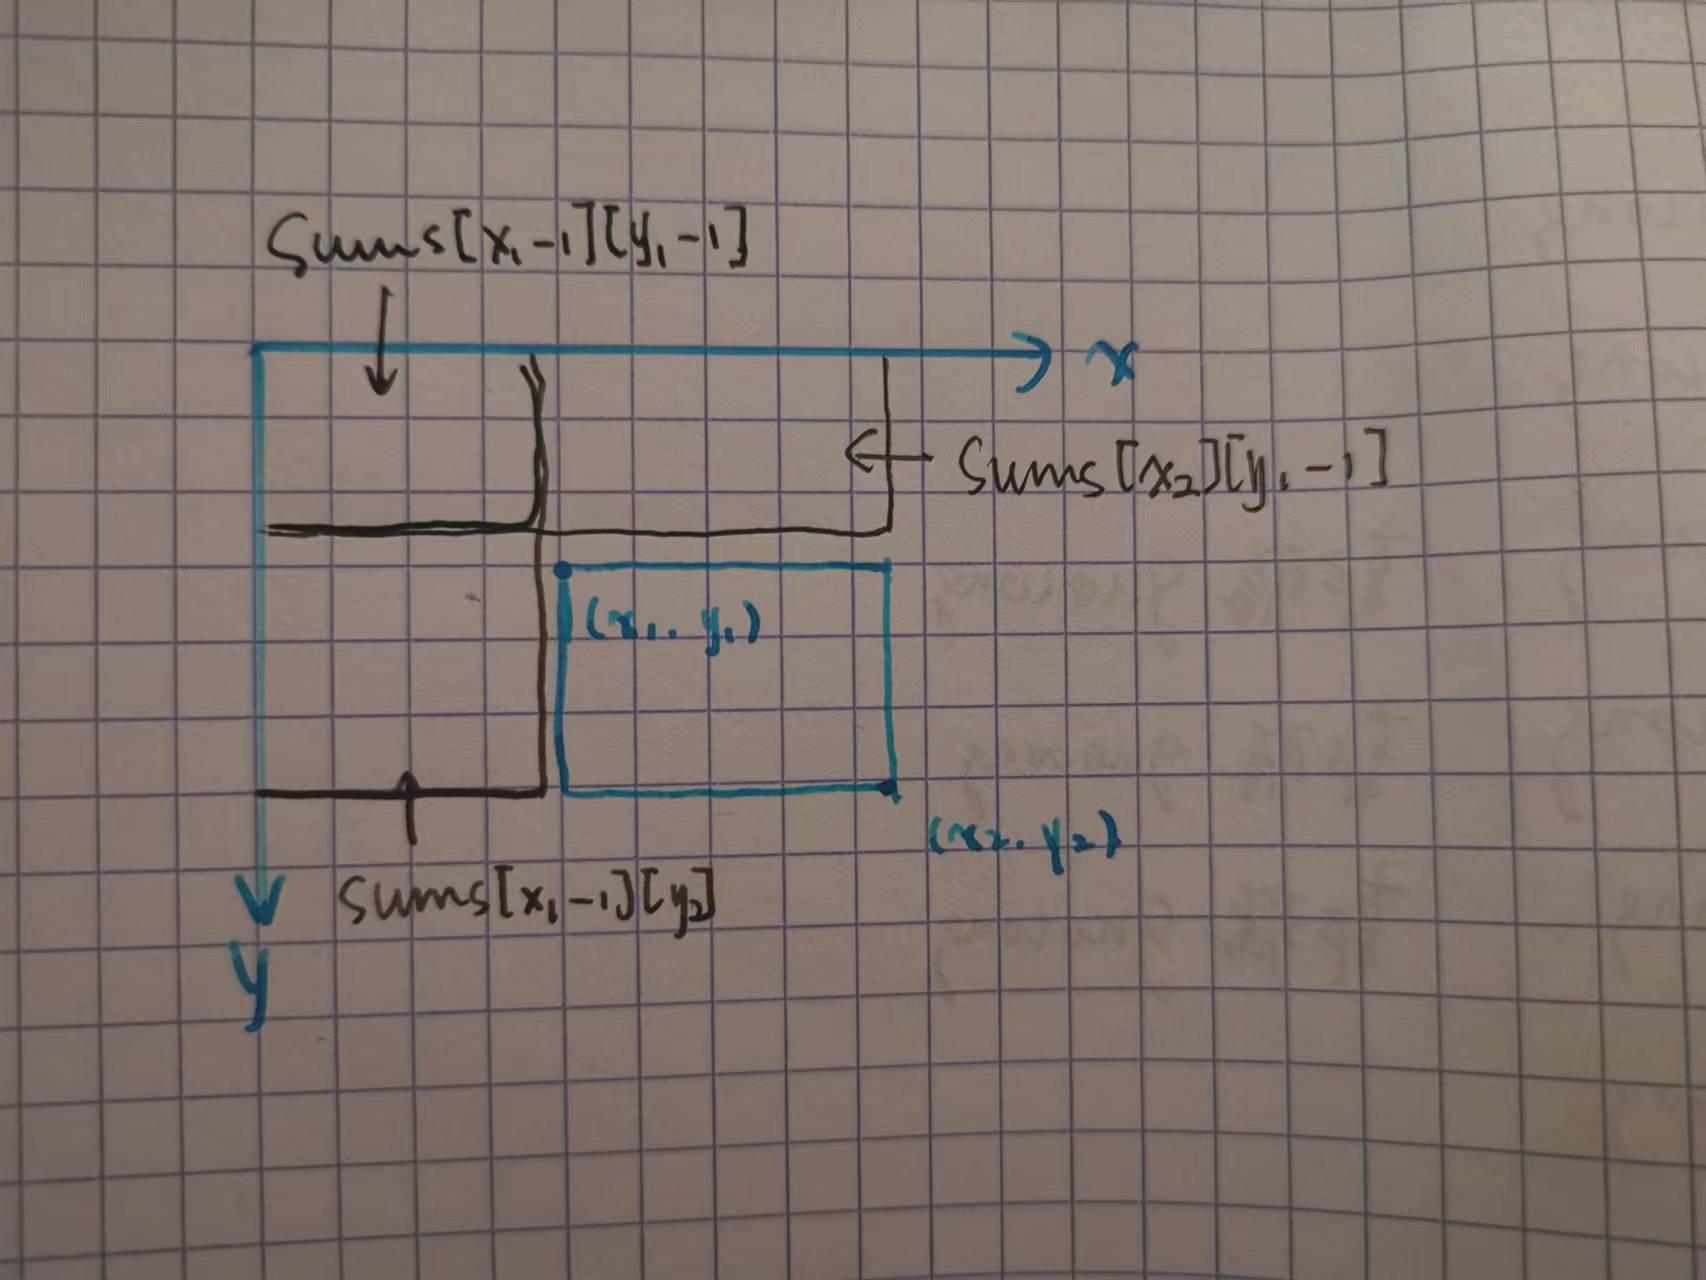 Sums[x₁-1][y₁-1]
x
Sums[x₂][y₁-1]
(x₁. y₁)
(x₂. y₂)
sums[x₁-1][y₂]
y